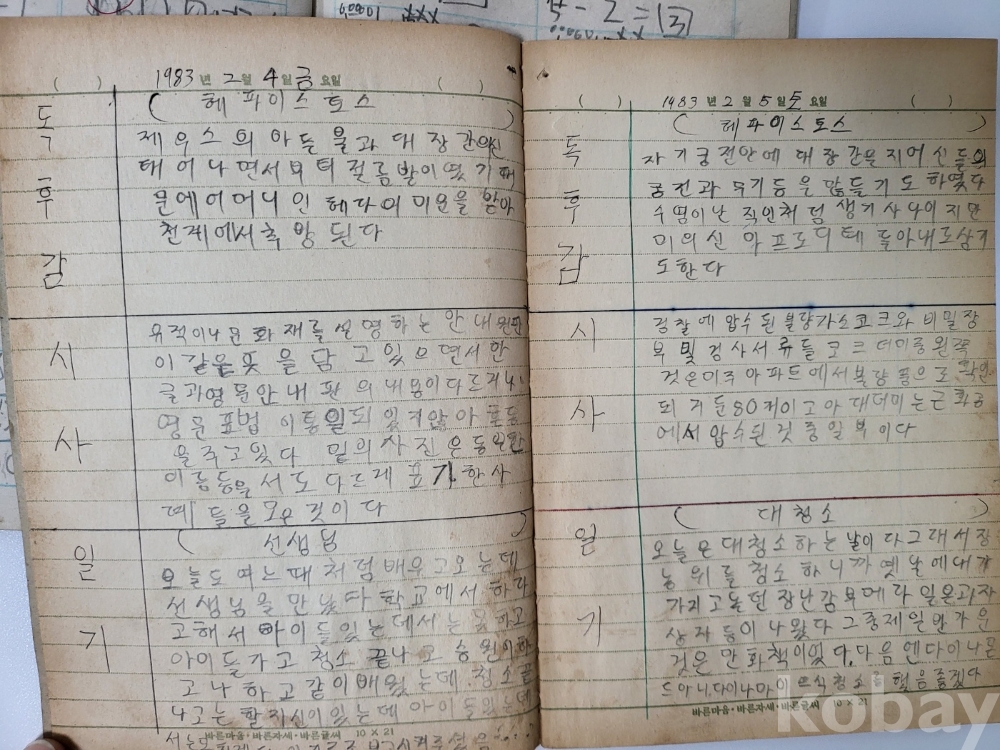 5 - 2 = 3
1983년 2월 4일 금요일
( )
( )
독후감
( 헤파이스토스 )
제우스의 아들 불과 대장간의신
태어나면서부터 절름발이였기때
문에어머니인 헤라의 미움을 받아
천계에서추방된다
시사
유적이나문화재를 설명하는 안내원판
이 같은뜻을 담고있으면서한
글과영문안내판의내용이다르거나
영문표법이통일되있지않아 혼동
을주고있다 밑의사진은동일한
이름들을서로다르게표기한사
례들을모은것이다
일기
( 선생님 )
오늘도 여느때처럼배우고오는데
선생님을만났다학교에서 하라
고해서 아이들있는데서는 못하고
아이들가고 청소 끝나고
고나하고같이배웠는데 청소끝
나고는 할자신이있는데 아이들있는데
바른마음·바른자세·바른글씨 10 X 21
1983년 2월 5일 토요일
( )
( )
독후감
( 헤파이스토스 )
자기궁전안에 대장간을지어 신들의
궁전과 무기등을만들기도하였다
수염이난 직인처럼 생기사나이지만
미의신 아프로디테 를아내로삼기
도한다
시사
경찰에압수된불량가스코크와 비밀장
부및검사서류들 코크 더미중왼쪽
것은미주아파트에서불량품으로확인
되거든80개이고아래더미는근화공
에서압수된것중일부이다
일기
( 대청소 )
오늘은대청소하는날이다그래서장
농위를청소하니까옛날에내가
가지고놀던장난감부메라일은과자
상자등이나왔다그중제일반가운
것은만화책이었다.다음엔다이나몬
드아니,다이나마이트식청소를했음좋겠다
바른마음·바른자세·바른글씨 10 X 21
kobay